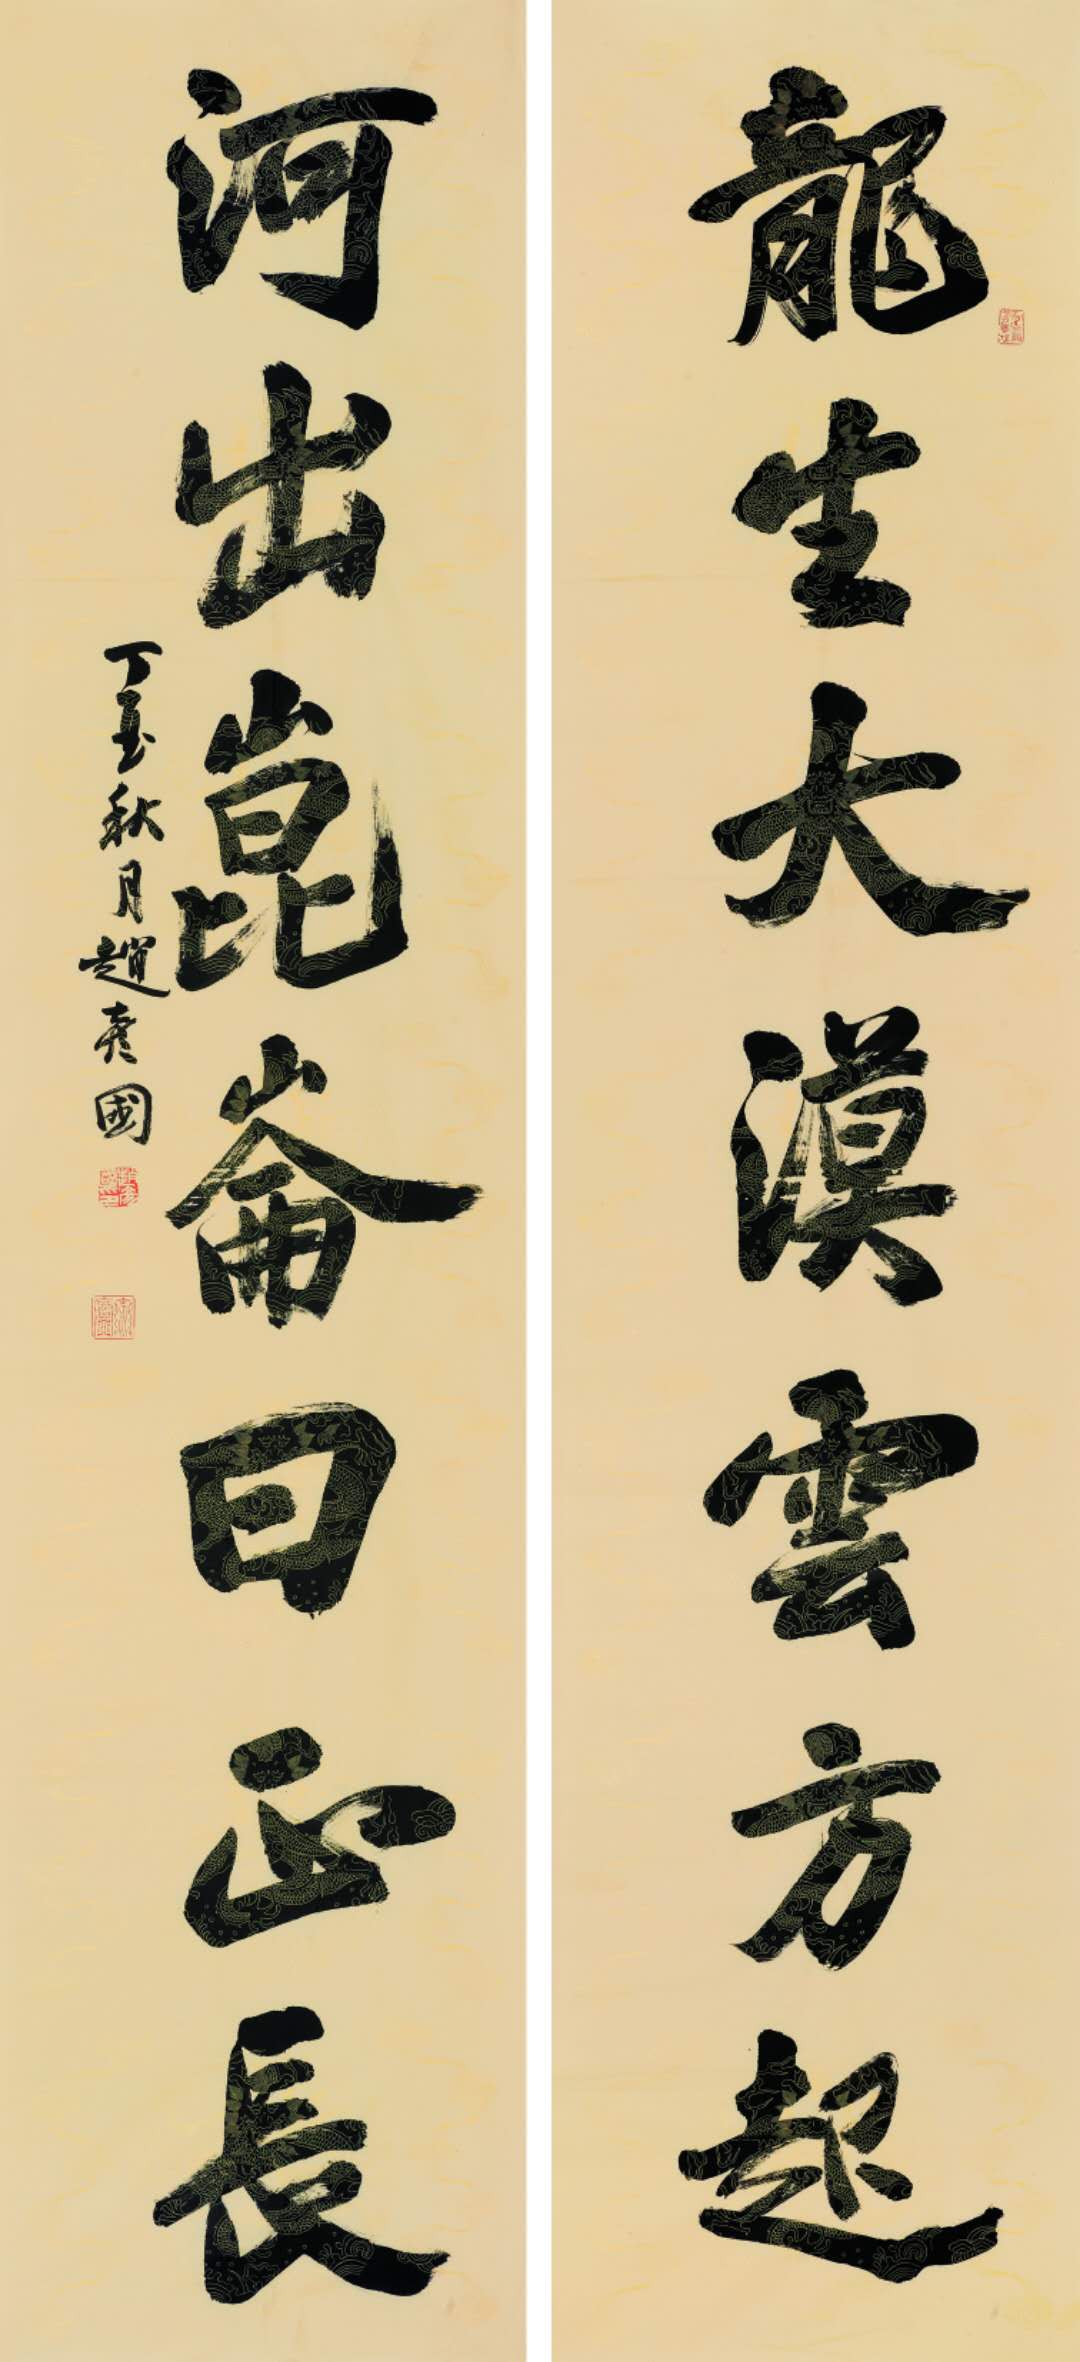 龍生大漠雲方起
河出崑崙日正長
丁亥秋月趙彥國